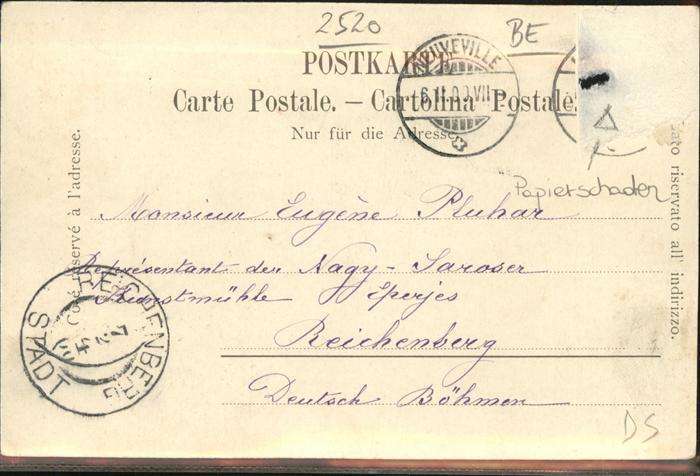 2520
BE
POSTKARTE
Carte Postale. — Cartolina Postale.
Nur für die Adresse.
NEUVEVILLE
Papierschaden
Côté réservé à l'adresse.
Lato riservato all' indirizzo.
Monsieur Eugène Pluhar
Représentant der Nagy-Saroser
Kunstmühle Eperjes
Reichenberg
Deutsch Böhmen
REICHENBERG
STADT
DS